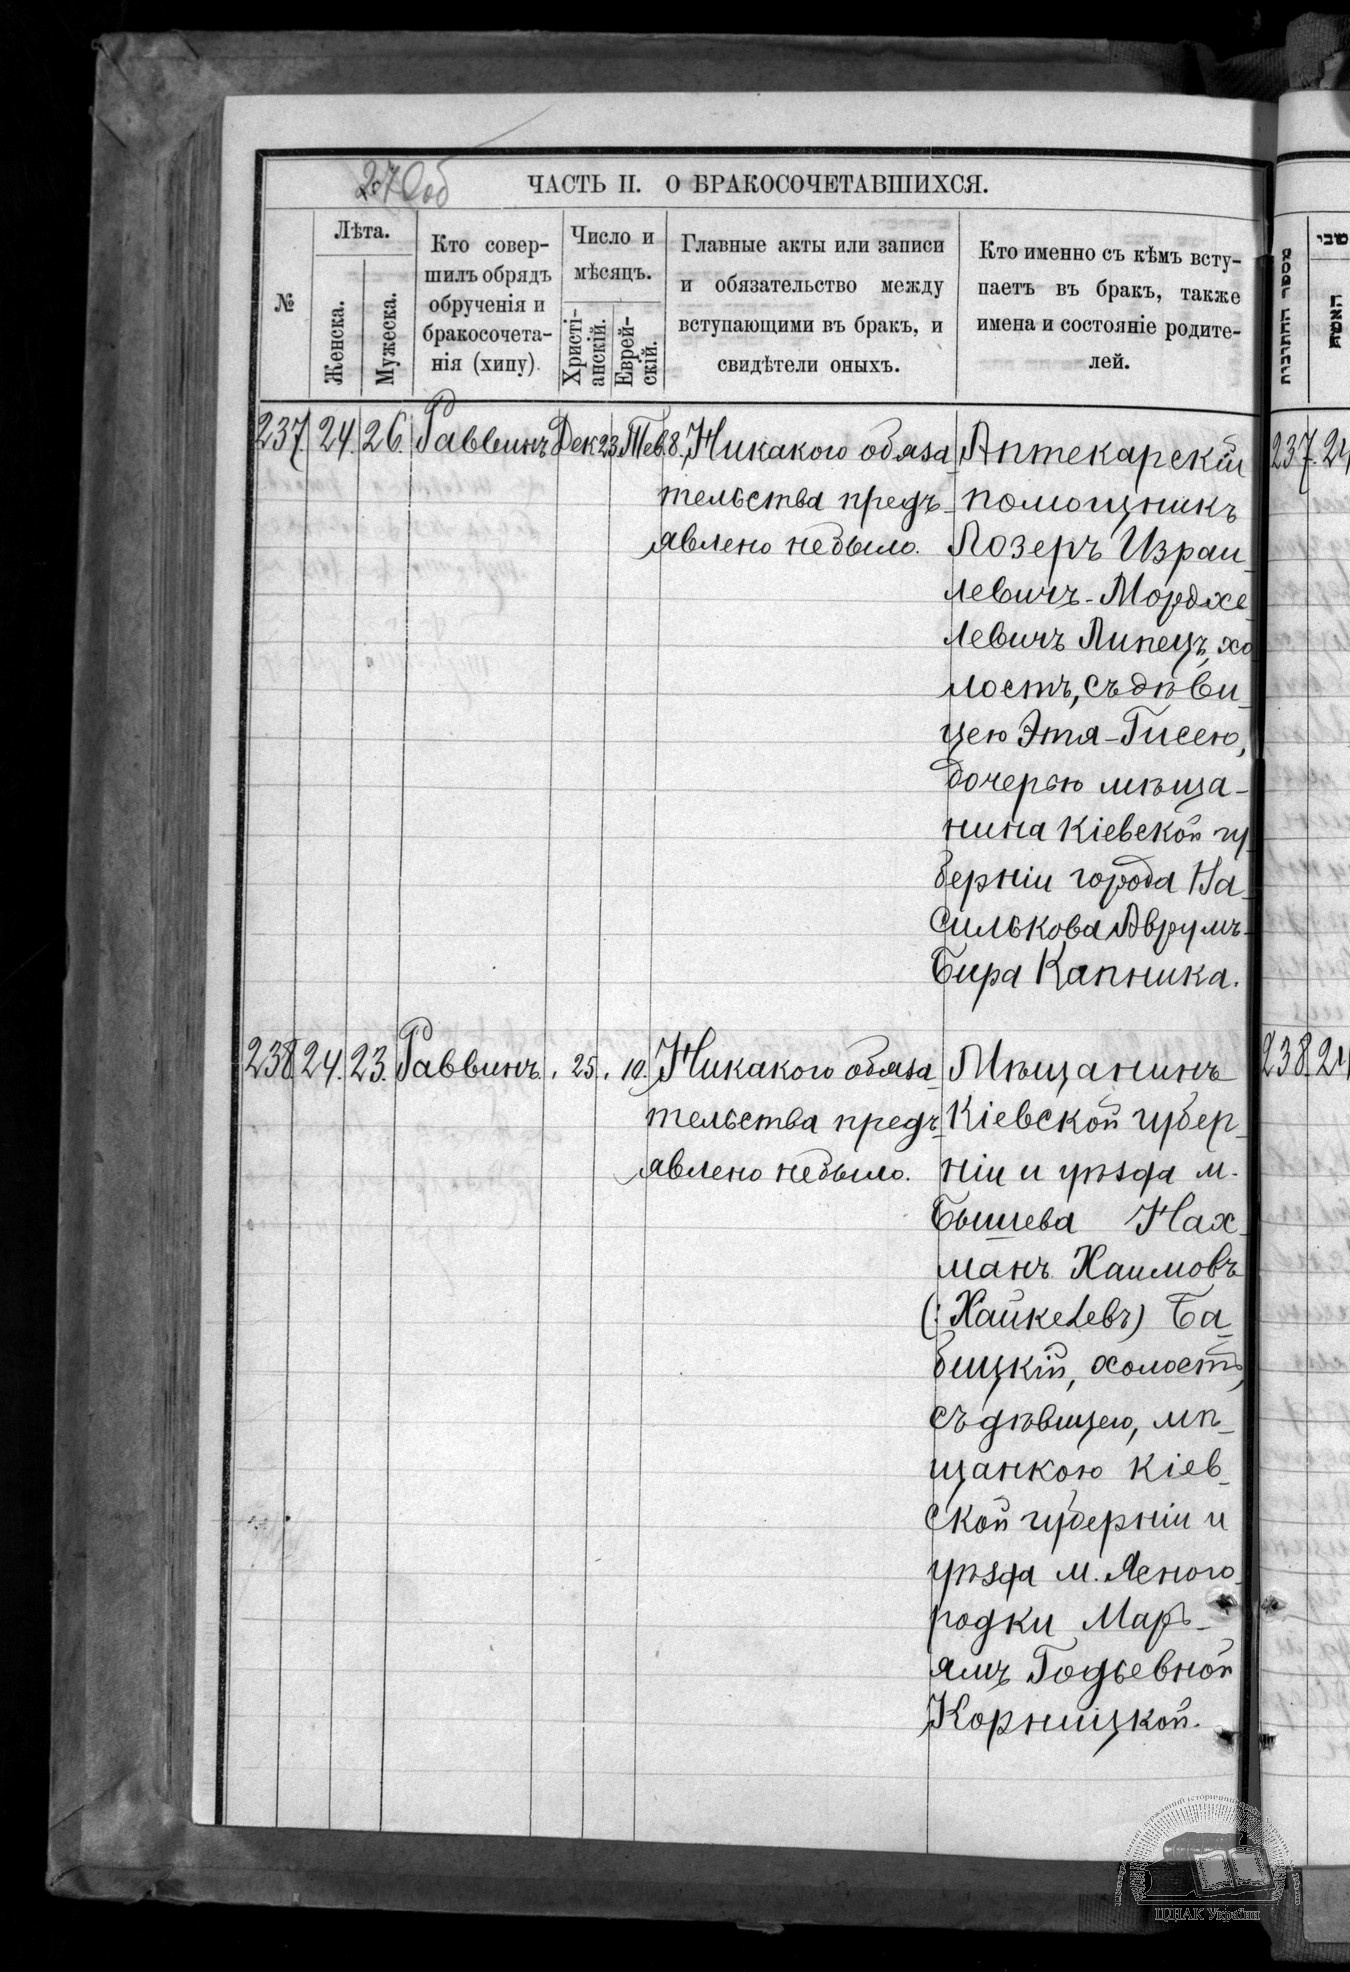 270об
ЧАСТЬ II. О БРАКОСОЧЕТАВШИХСЯ.
№
Лѣта.
Женска.
Мужеска.
Кто совер-
шилъ обрядъ
обрученія и
бракосочета-
нія (хипу)
Число и
мѣсяцъ.
Христі-
анскій.
Еврей-
скій.
Главные акты или записи
и обязательство между
вступающими въ бракъ, и
свидѣтели оныхъ.
Кто именно съ кѣмъ всту-
паетъ въ бракъ, также
имена и состояніе родите-
лей.
מספר החתונות
האשה
237. 24. 26. Раввинъ Дек 23. Тев. 8. Никакого обяза
тельства предъ-
явлено не было.
Аптекарскій
помощникъ
Лозеръ Израи-
левичъ-Мордхе
левичъ Липецъ, хо
лостъ, съ дѣви-
цею Этя-Гисею,
дочерью мѣща-
нина Кіевской гу-
берніи города Ва-
силькова Аврумъ-
Бира Капника.
237. 24
238 24. 23. Раввинъ. " 25. " 10. Никакого обяза-
тельства предъ-
явлено не было.
Мѣщанинъ
Кіевской губер-
ніи и уѣзда м.
Бышева Нах-
манъ Хаимовъ
(: Хайкелевъ) Ба-
бицкій, холостъ,
съ дѣвицею, мѣ-
щанкою Кіев-
ской губерніи и
уѣзда м. Ясного-
родки Марь-
ямъ Годьевной
Корницкой.
238. 24
ЦДІАК України